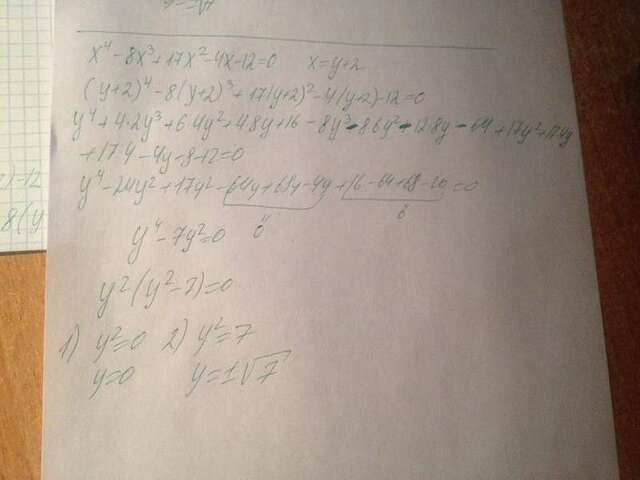 x⁴-8x³+17x²-4x-12=0 x=y+2
(y+2)⁴-8(y+2)³+17(y+2)²-4(y+2)-12=0
y⁴+4·2y³+6·4y²+4·8y+16-8y³-8·6y²-12·8y-64+17y²+17·4y
+17·4-4y-8-12=0
y⁴-24y²+17y²-64y+68y-4y+16-64+68-20=0
0 0
y⁴-7y²=0
y²(y²-7)=0
1) y²=0 2) y²=7
y=0 y=±√7